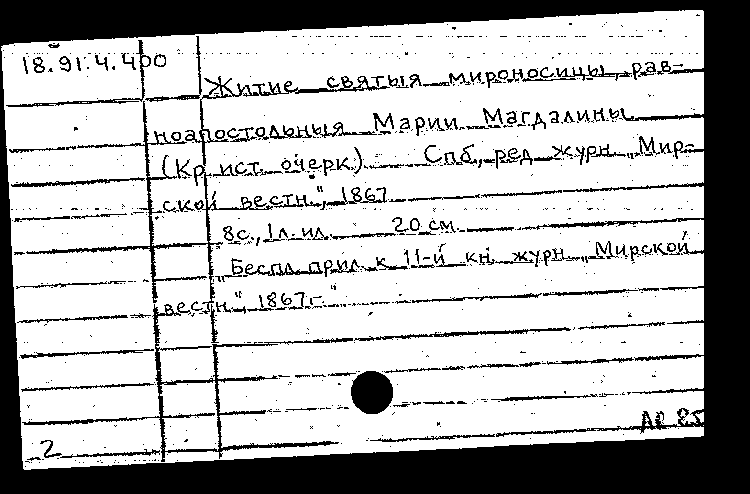 18.91.4.400
Житие святыя мироносицы, рав-
ноапостольныя Марии Магдалины.
(Кр. ист. очерк.) Спб., ред. журн. „Мир-
ской вестн.", 1867.
8с., 1л. ил. 20 см.
„Беспл. прил. к 11-й кн. журн. „Мирской
вестн.", 1867г."
2
АР 85